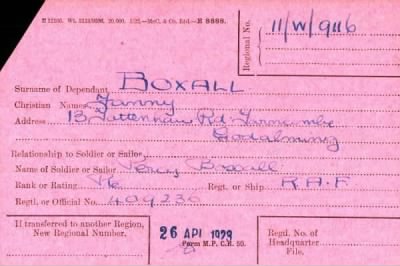 11/W/9116
Regional No.
Surname of Dependant BOXALL
Christian Names Fanny
Address 13 Tottenham Rd Farncombe
Godalming
Relationship to Soldier or Sailor
Name of Soldier or Sailor Percy Boxall
Rank or Rating Pte Regt. or Ship R.A.F
Regtl. or Official No. 409230
If transferred to another Region,
New Regional Number.
26 API 1929
Form M.P.C.H. 50.
Regtl. No. of
Headquarter
File.